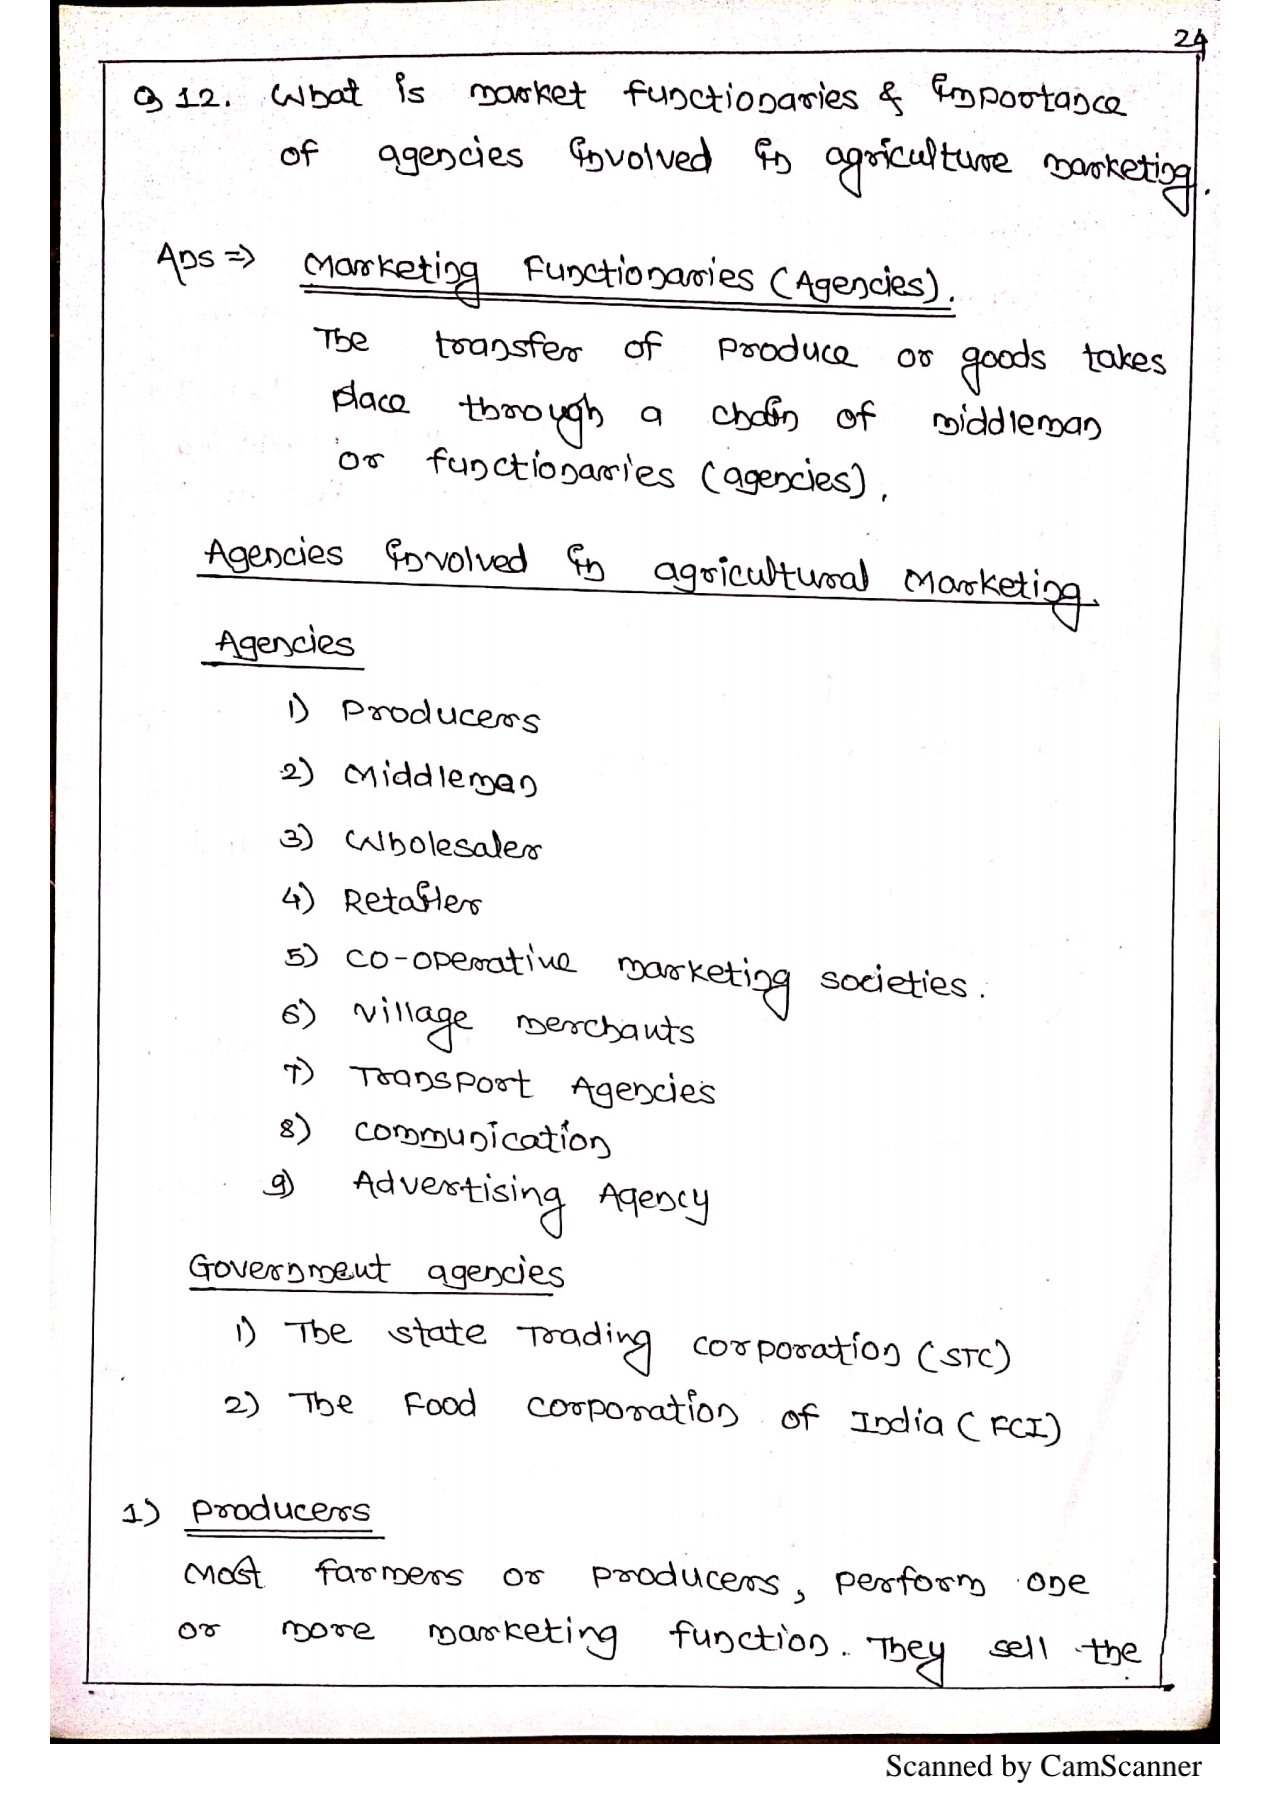 24
Q 12. What is market functionaries & importance
of agencies involved in agriculture marketing.
Ans => Marketing Functionaries (Agencies).
The transfer of produce or goods takes
place through a chain of middleman
or functionaries (agencies).
Agencies involved in agricultural Marketing.
Agencies
1) Producers
2) Middleman
3) Wholesaler
4) Retailer
5) co-operative marketing societies.
6) village merchants
7) Transport Agencies
8) communication
9) Advertising Agency
Government agencies
1) The state Trading corporation (STC)
2) The Food corporation of India (FCI)
1) Producers
Most farmers or producers, perform one
or more marketing function. They sell the
Scanned by CamScanner